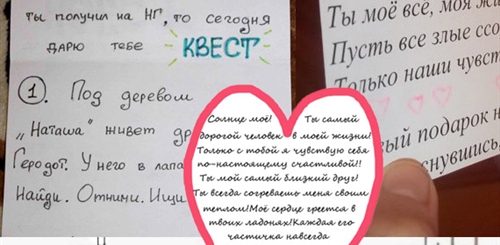 ты получил на НГ, то сегодня
дарю тебе КВЕСТ
1. Под деревом
„Наташа" живет др
Геродот. У него в лапа
Найди. Отними. Ищи
Солнце моё! Ты самый
дорогой человек в моей жизни!
Только с тобой я чувствую себя
по-настоящему счастливой!!
Ты мой самый близкий друг!
Ты всегда согреваешь меня своим
теплом!Моё сердце греется в
твоих ладонях!Каждая его
частичка навсегда
Ты моё всё, моя жи
Пусть все злые ссо
Только наши чувст
вый подарок н
снувшись,